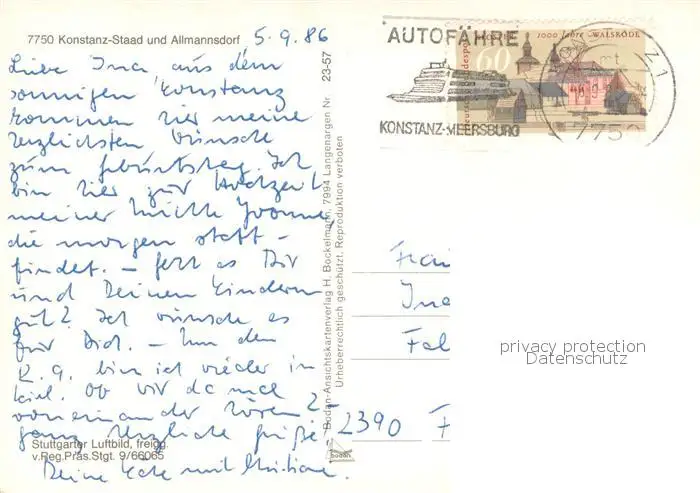 7750 Konstanz-Staad und Allmannsdorf
5.9.86
Liebe Ina, aus dem
sonnigen Konstanz
kommen hier meine
herzlichsten Wünsche
zum Geburtstag. Ich
bin hier zur Hochzeit
meiner Nichte Yvonne,
die morgen statt-
findet. – Geht es Dir
und Deinen Kindern
gut? Ich wünsche es
für Dich. – Um den
12.9. bin ich wieder in
Kiel. Ob wir da mal
voneinander hören?
ganz herzliche Grüße
Deine mit Christiane.
Stuttgarter Luftbild, freigg.
v.Reg.Präs.Stgt. 9/66065
Bodan-Ansichtskartenverlag H. Bockelmann, 7994 Langenargen Nr 23-57
Urheberrechtlich geschützt, Reproduktion verboten
bodan
AUTOFÄHRE
KONSTANZ-MEERSBURG
1000 Jahre WALSRODE
60
Deutsche Bundespost
7750
Z1
Frau
Ina
2390 F
privacy protection
Datenschutz